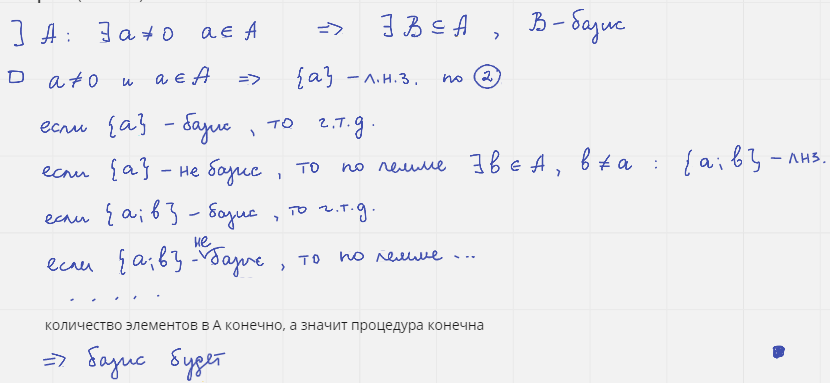 ] A: ∃ a ≠ 0 a ∈ A ⇒ ∃ B ⊆ A, B – базис
□ a ≠ 0 и a ∈ A ⇒ {a} – л.н.з. по ②
если {a} – базис, то ч.т.д.
если {a} – не базис, то по лемме ∃ b ∈ A, b ≠ a : {a; b} – лнз.
если {a; b} – базис, то ч.т.д.
если {a; b} – не базис, то по лемме ...
. . . . .
количество элементов в А конечно, а значит процедура конечна
⇒ базис будет ■